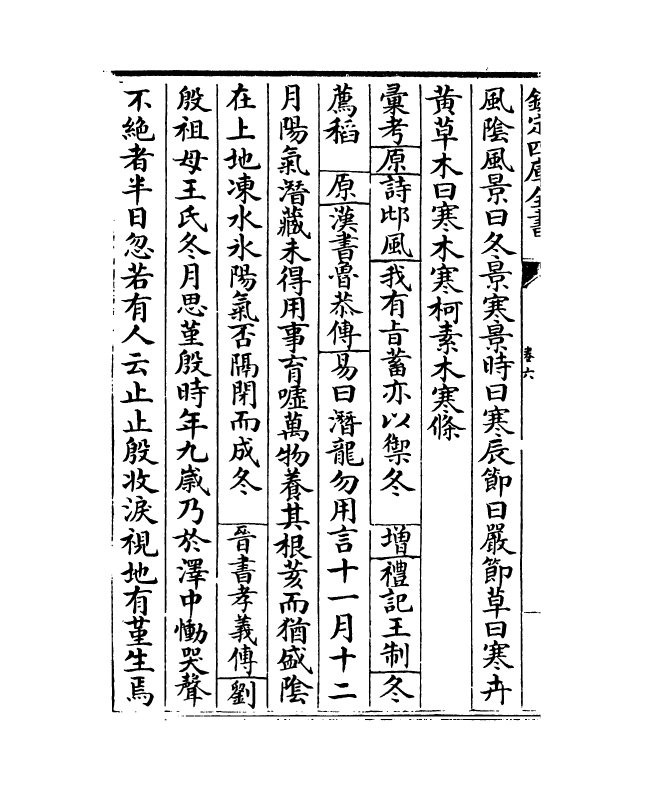 欽定四庫全書
卷六
風陰風景曰冬景寒景時曰寒辰節曰嚴節草曰寒卉
黄草木曰寒木寒柯素木寒條
彚考原詩邶風我有旨蓄亦以禦冬　增禮記王制冬
薦稻　原漢書魯恭傳易曰潛龍勿用言十一月十二
月陽氣潛藏未得用事育嘘萬物養其根荄而猶盛陰
在上地凍水氷陽氣否隔閉而成冬　晉書孝義傳劉
殷祖母王氏冬月思堇殷時年九嵗乃於澤中慟哭聲
不絶者半日忽若有人云止止殷收淚視地有堇生焉